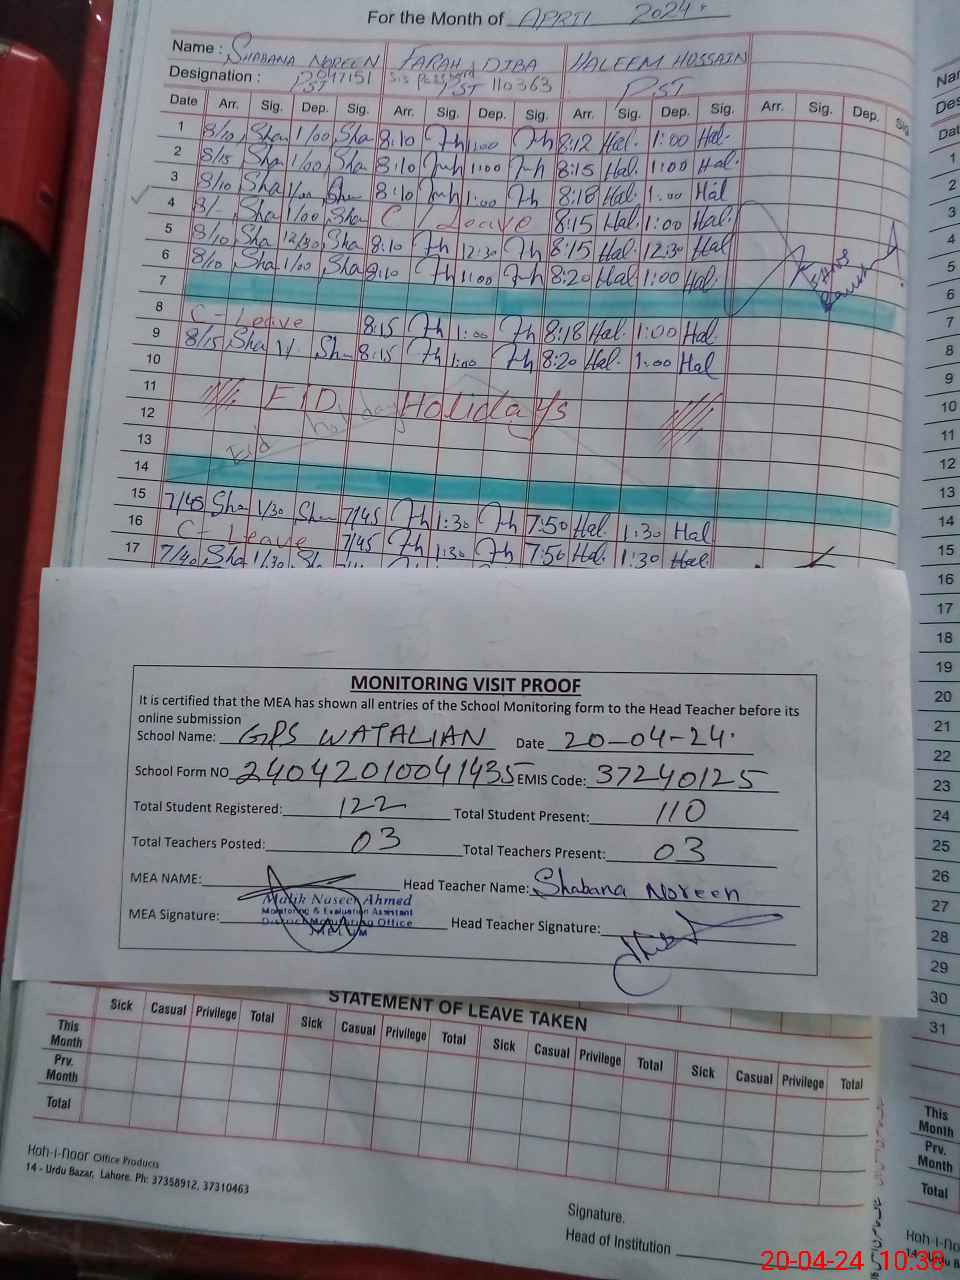 For the Month of APRIL 2024
Name : SHABANA NOREEN FARAH DIBA HALEEM HOSSAIN
Designation : PST PST 110363 PST
Date Arr. Sig. Dep. Sig. Arr. Sig. Dep. Sig. Arr. Sig. Dep. Sig. Arr. Sig. Dep. Sig.
1 8/10 Sha 1/00 Sha 8:10 1:00 8:12 Hal. 1:00 Hal.
2 8/15 Sha 1/00 Sha 8:10 1:00 8:15 Hal. 1:00 Hal.
3 8/10 Sha 1/00 Sha 8:10 1:00 8:18 Hal. 1:00 Hal
4 8/- Sha 1/00 Sha C / Leave 8:15 Hal. 1:00 Hal.
5 8/10 Sha 12/30 Sha 8:10 12:30 8:15 Hal. 12:30 Hal
6 8/10 Sha 1/00 Sha 8:10 1:00 8:20 Hal. 1:00 Hal.
7
8 C - Leave 8:15 1:00 8:18 Hal. 1:00 Hal.
9 8/15 Sha 1/- Sha 8:15 1:00 8:20 Hal. 1:00 Hal
10
11 EID Holidays
12 Eid holiday
13
14
15 7/45 Sha 1/30 Sha 7/45 1:30 7:50 Hal. 1:30 Hal
16 C - Leave 7/45 1:30 7:50 Hal. 1:30 Hal.
17 7/40 Sha 1/30
MONITORING VISIT PROOF
It is certified that the MEA has shown all entries of the School Monitoring form to the Head Teacher before its
online submission
School Name: GPS WATALIAN Date 20-04-24.
School Form NO 24042010041435 EMIS Code: 37240125
Total Student Registered: 122 Total Student Present: 110
Total Teachers Posted: 03 Total Teachers Present: 03
MEA NAME: Head Teacher Name: Shabana Noreen
Malik Naseer Ahmed
Monitoring & Evaluation Assistant
District Monitoring Office
MEA Signature: Head Teacher Signature:
STATEMENT OF LEAVE TAKEN
Sick Casual Privilege Total Sick Casual Privilege Total Sick Casual Privilege Total Sick Casual Privilege Total
This
Month
Prv.
Month
Total
Koh-i-noor Office Products
14 - Urdu Bazar, Lahore. Ph: 37358912, 37310463
Signature.
Head of Institution
Nar
Des
Dat
1
2
3
4
5
6
7
8
9
10
11
12
13
14
15
16
17
18
19
20
21
22
23
24
25
26
27
28
29
30
31
This
Month
Prv.
Month
Total
20-04-24 10:38